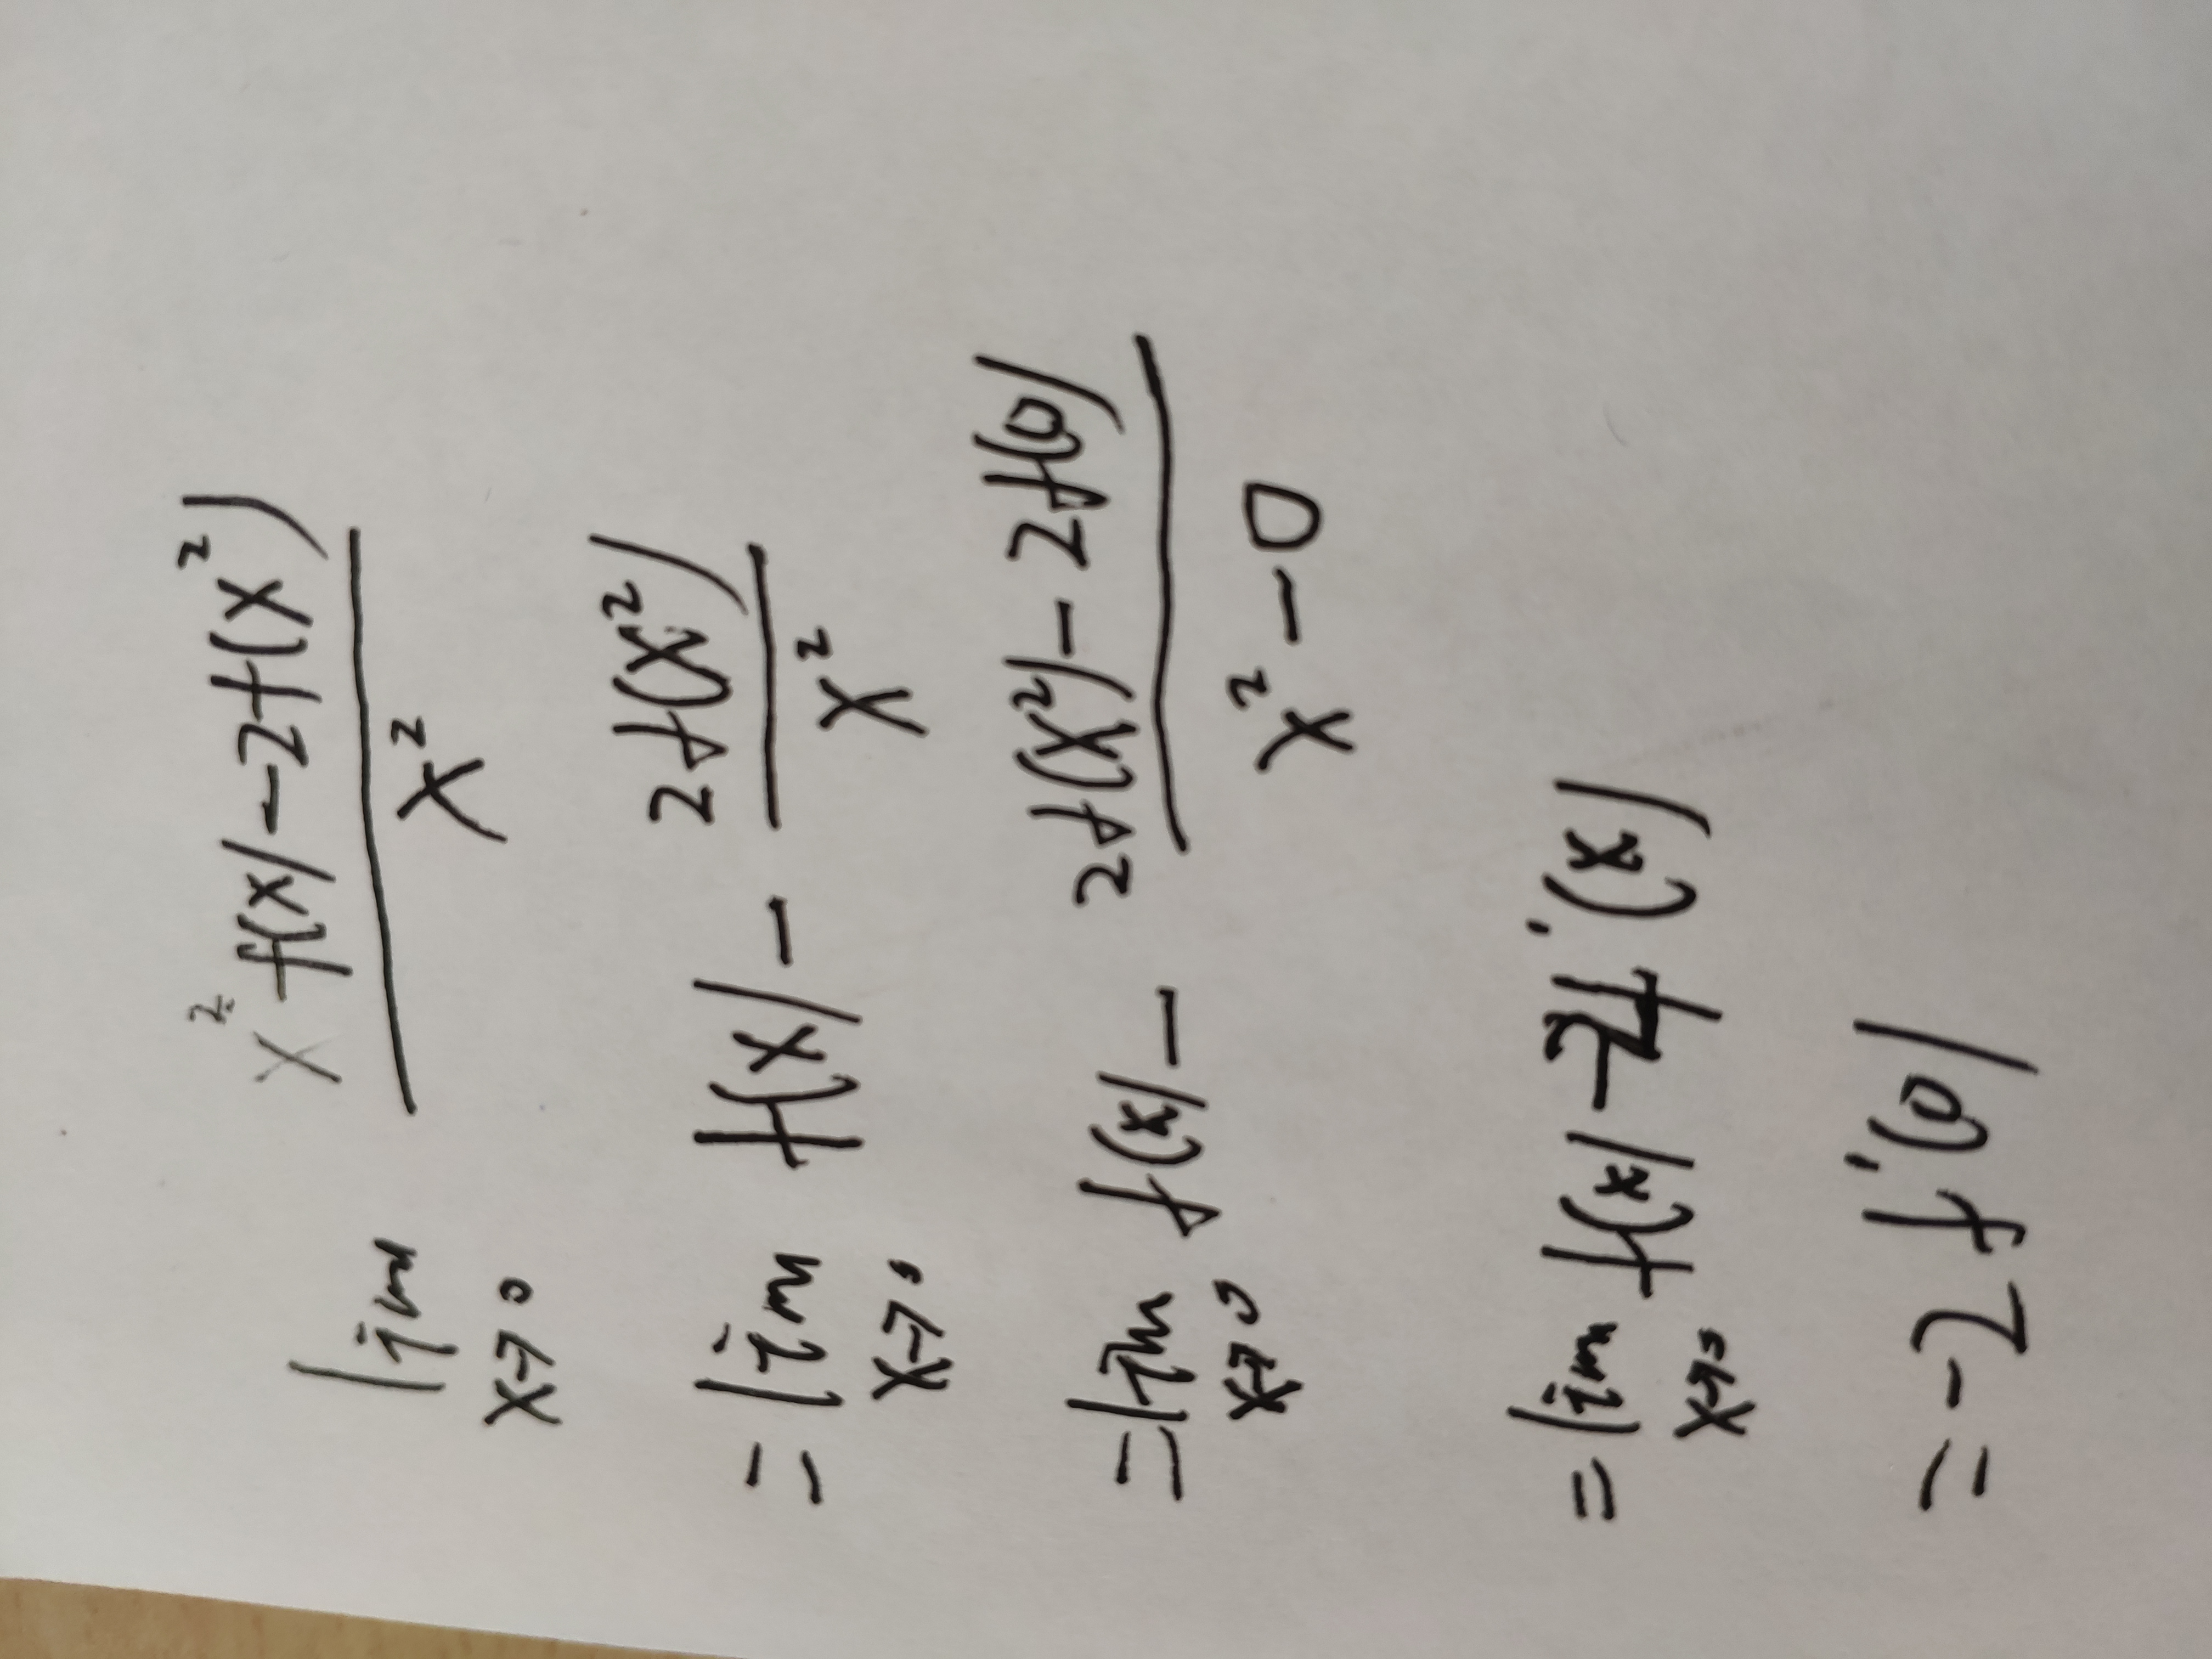 lim x→0 (x² f(x) - 2f(x²)) / x²
= lim x→0 f(x) - 2f(x²) / x²
= lim x→0 f(x) - (2f(x²) - 2f(0)) / (x² - 0)
= lim x→0 f(x) - 2f'(x)
= -2f'(0)